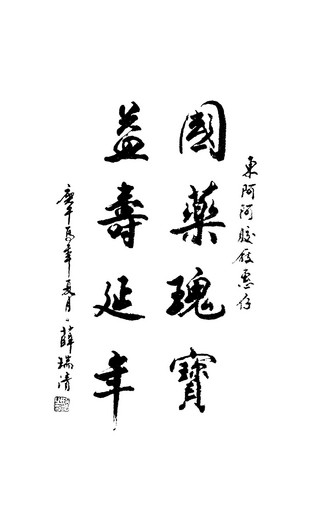 東阿阿胶厰惠存
國藥瑰寶
益壽延年
庚午馬年夏月薛瑞清